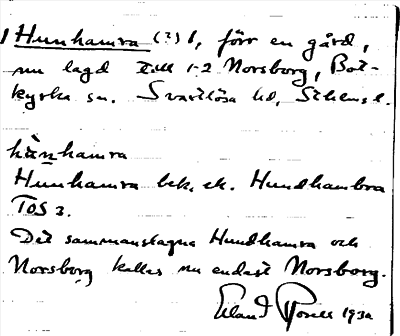 Hunhamra (?) l, förr en gård,
nu lagd till 1-2 Norsborg, Bot-
kyrka sn. Svartlösa hd, Sthms l.
hùnhamra
Hunhamra bek. ek. Hundhambra
TOS 3.
Det sammanslagna Hundhamra och
Norsborg kallas nu endast Norsborg.
Erland 193a